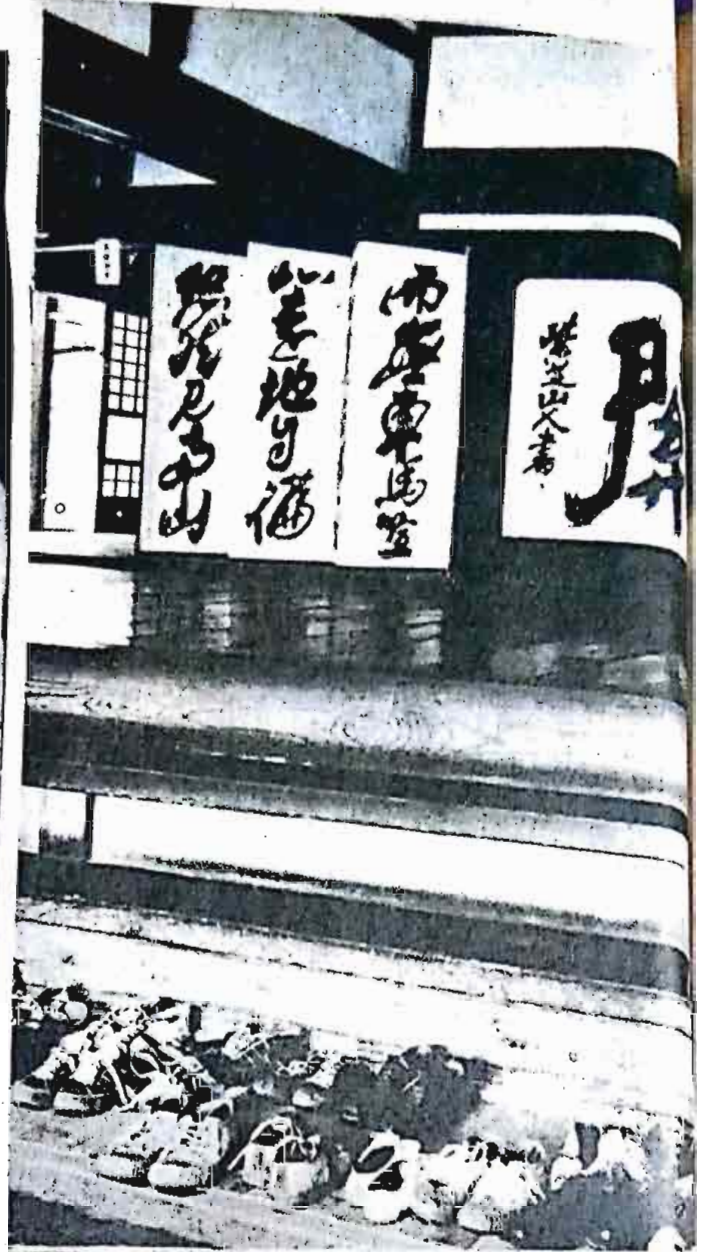 紫芝山人書
而無車馬喧
心遠地自偏
悠然見南山